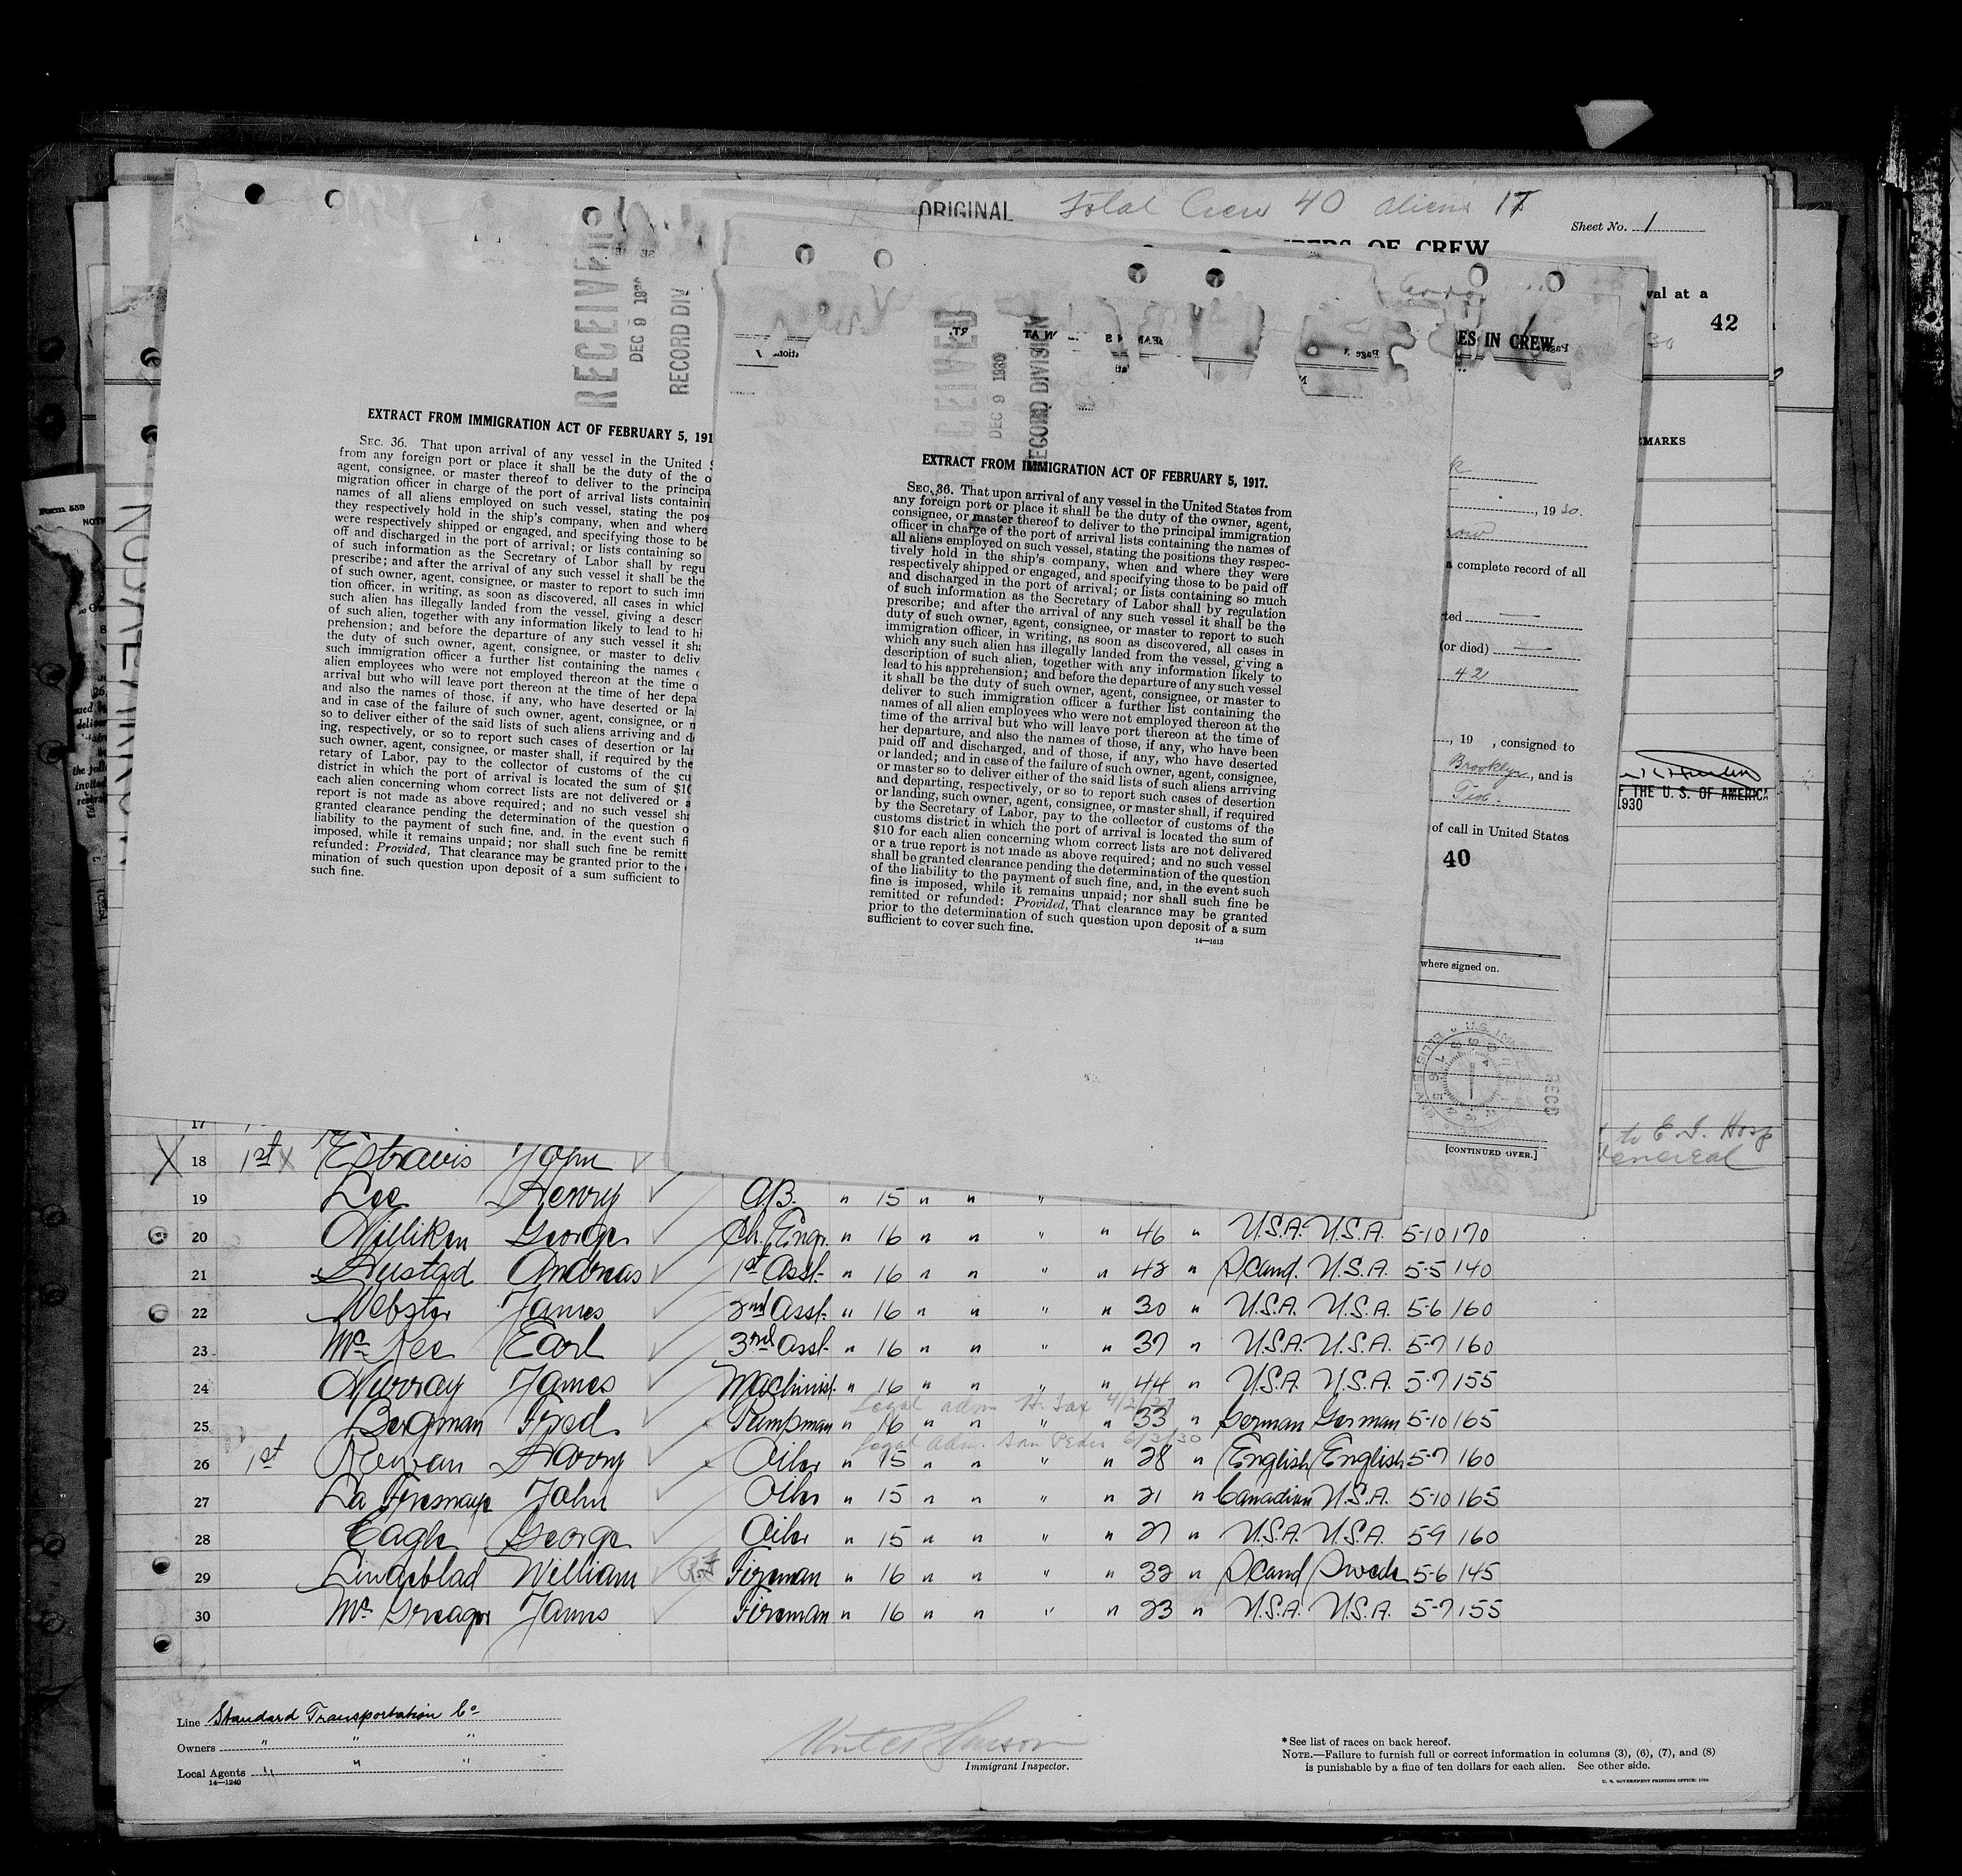 ORIGINAL Total Crew 40 aliens 17
Sheet No. 1
OF CREW
val at a
42
ES IN CREW
RECEIVED
DEC 9 1930
RECORD DIV
RECEIVED
DEC 9 1930
RECORD DIVISION
MARKS
Form 559
EXTRACT FROM IMMIGRATION ACT OF FEBRUARY 5, 191
SEC. 36. That upon arrival of any vessel in the United S
from any foreign port or place it shall be the duty of the o
agent, consignee, or master thereof to deliver to the principa
migration officer in charge of the port of arrival lists containin
names of all aliens employed on such vessel, stating the pos
they respectively hold in the ship's company, when and where
were respectively shipped or engaged, and specifying those to be
off and discharged in the port of arrival; or lists containing so
of such information as the Secretary of Labor shall by regu
prescribe; and after the arrival of any such vessel it shall be the
of such owner, agent, consignee, or master to report to such imm
tion officer, in writing, as soon as discovered, all cases in whicl
such alien has illegally landed from the vessel, giving a descr
of such alien, together with any information likely to lead to hi
prehension; and before the departure of any such vessel it sha
the duty of such owner, agent, consignee, or master to deliv
such immigration officer a further list containing the names o
alien employees who were not employed thereon at the time o
arrival but who will leave port thereon at the time of her depa
and also the names of those, if any, who have deserted or la
and in case of the failure of such owner, agent, consignee, or n
so to deliver either of the said lists of such aliens arriving and d
ing, respectively, or so to report such cases of desertion or lan
such owner, agent, consignee, or master shall, if required by the
retary of Labor, pay to the collector of customs of the cu
district in which the port of arrival is located the sum of $10
each alien concerning whom correct lists are not delivered or a
report is not made as above required; and no such vessel sha
granted clearance pending the determination of the question o
liability to the payment of such fine, and, in the event such fi
imposed, while it remains unpaid; nor shall such fine be remitt
refunded: Provided, That clearance may be granted prior to the
mination of such question upon deposit of a sum sufficient to
such fine.
EXTRACT FROM IMMIGRATION ACT OF FEBRUARY 5, 1917.
SEC. 36. That upon arrival of any vessel in the United States from
any foreign port or place it shall be the duty of the owner, agent,
consignee, or master thereof to deliver to the principal immigration
officer in charge of the port of arrival lists containing the names of
all aliens employed on such vessel, stating the positions they respec-
tively hold in the ship's company, when and where they were
respectively shipped or engaged, and specifying those to be paid off
and discharged in the port of arrival; or lists containing so much
of such information as the Secretary of Labor shall by regulation
prescribe; and after the arrival of any such vessel it shall be the
duty of such owner, agent, consignee, or master to report to such
immigration officer, in writing, as soon as discovered, all cases in
which any such alien has illegally landed from the vessel, giving a
description of such alien, together with any information likely to
lead to his apprehension; and before the departure of any such vessel
it shall be the duty of such owner, agent, consignee, or master to
deliver to such immigration officer a further list containing the
names of all alien employees who were not employed thereon at the
time of the arrival but who will leave port thereon at the time of
her departure, and also the names of those, if any, who have been
paid off and discharged, and of those, if any, who have deserted
or landed; and in case of the failure of such owner, agent, consignee,
or master so to deliver either of the said lists of such aliens arriving
and departing, respectively, or so to report such cases of desertion
or landing, such owner, agent, consignee, or master shall, if required
by the Secretary of Labor, pay to the collector of customs of the
customs district in which the port of arrival is located the sum of
$10 for each alien concerning whom correct lists are not delivered
or a true report is not made as above required; and no such vessel
shall be granted clearance pending the determination of the question
of the liability to the payment of such fine, and, in the event such
fine is imposed, while it remains unpaid; nor shall such fine be
remitted or refunded: Provided, That clearance may be granted
prior to the determination of such question upon deposit of a sum
sufficient to cover such fine.
14—1613
, 1930.
a complete record of all
ted
(or died)
42
, 19 , consigned to
Brooklyn, and is
of call in United States
40
THE U.S. OF AMERICA
1930
where signed on.
[CONTINUED OVER.]
to E. I. Hosp
Venereal
17
18 1st x Estravis John
19 Lee Henry A.B. " 15 " " "
20 Milliken George Ch. Engr. " 16 " " " " 46 " U.S.A. U.S.A. 5-10 170
21 Hustad Andreas 1st Asst. " 16 " " " " 42 " Scand. U.S.A. 5-5 140
22 Webster James 2nd Asst. " 16 " " " " 30 " U.S.A. U.S.A. 5-6 160
23 Mc Kee Earl 3rd Asst. " 16 " " " " 37 " U.S.A. U.S.A. 5-7 160
24 Murray James Machinist " 16 " " " " 44 " U.S.A. U.S.A. 5-7 155
Legal adm
25 Bergman Fred x Pumpman " 16 " " " " 33 " German German 5-10 165
Legal adm. San Pedro 6/3/30
26 1st Rowan Harry x Oiler " 15 " " " " 28 " English English 5-7 160
27 La Fresnaye John Oiler " 15 " " " " 21 " Canadian U.S.A. 5-10 165
28 Eagle George Oiler " 15 " " " " 27 " U.S.A. U.S.A. 5-9 160
29 Lindeblad William Fireman " 16 " " " " 32 " Scand Swede 5-6 145
30 Mc Greagor James Fireman " 16 " " " " 23 " U.S.A. U.S.A. 5-7 155
Line Standard Transportation Co.
Owners " " "
Local Agents " " "
14—1240
Immigrant Inspector.
* See list of races on back hereof.
NOTE.—Failure to furnish full or correct information in columns (3), (6), (7), and (8)
is punishable by a fine of ten dollars for each alien. See other side.